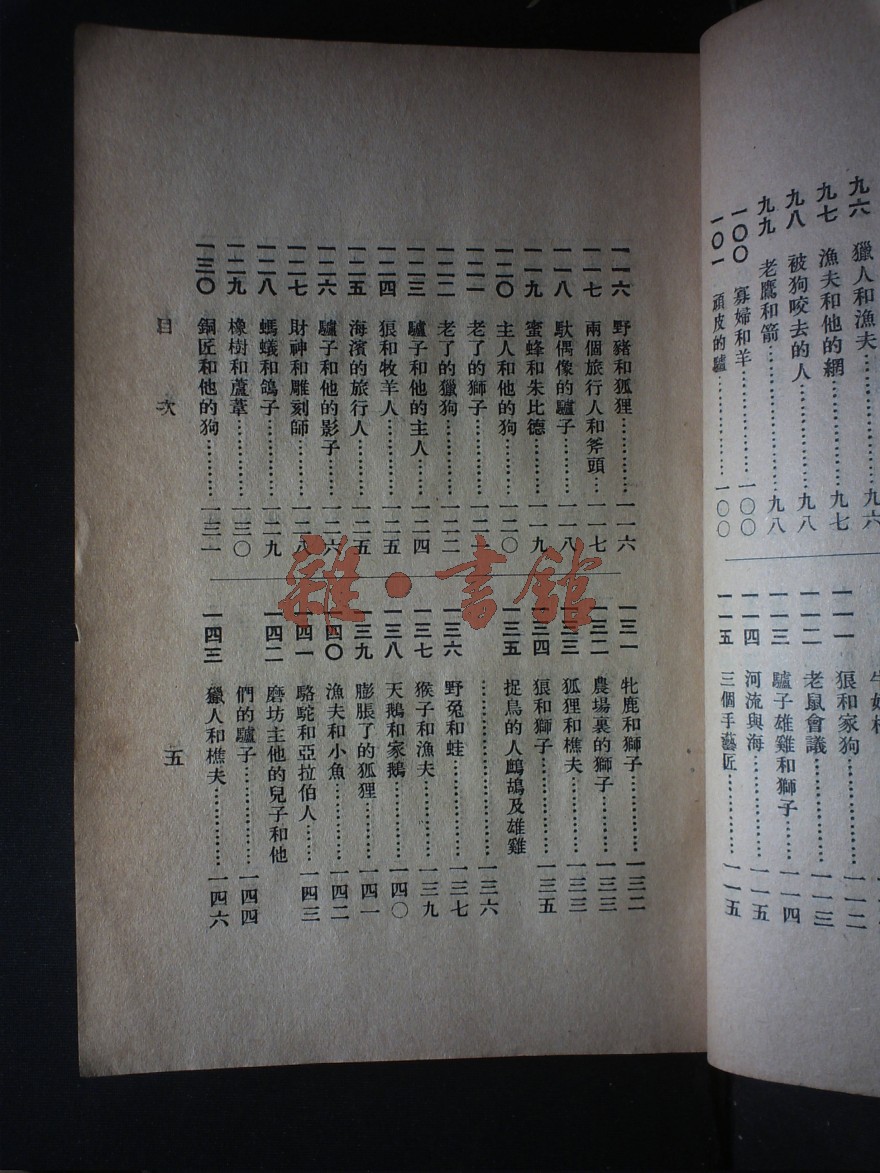 九六 獵人和漁夫……九六
九七 漁夫和他的網……九七
九八 被狗咬去的人……九八
九九 老鷹和箭……九八
一〇〇 寡婦和羊……一〇〇
一〇一 頑皮的驢……一〇〇
一一一 狼和家狗……一一二
一一二 老鼠會議……一一三
一一三 驢子雄雞和獅子……一一四
一一四 河流與海……一一五
一一五 三個手藝匠……一一五
一一六 野豬和狐狸……一一六
一一七 兩個旅行人和斧頭…一一七
一一八 馱偶像的驢子……一一八
一一九 蜜蜂和朱比德……一一九
一二〇 主人和他的狗……一二〇
一二一 老了的獅子……一二一
一二二 老了的獵狗……一二二
一二三 驢子和他的主人……一二四
一二四 狼和牧羊人……一二五
一二五 海濱的旅行人……一二五
一二六 驢子和他的影子……一二六
一二七 財神和雕刻師……一二八
一二八 螞蟻和鴿子……一二九
一二九 橡樹和蘆葦……一三〇
一三〇 銅匠和他的狗……一三一
一三一 牝鹿和獅子……一三二
一三二 農場裏的獅子……一三三
一三三 狐狸和樵夫……一三三
一三四 狼和獅子……一三五
一三五 捉鳥的人鷓鴣及雄雞
……一三六
一三六 野兔和蛙……一三七
一三七 猴子和漁夫……一三九
一三八 天鵝和家鵝……一四〇
一三九 膨脹了的狐狸……一四一
一四〇 漁夫和小魚……一四二
一四一 駱駝和亞拉伯人……一四三
一四二 磨坊主他的兒子和他
們的驢子……一四四
一四三 獵人和樵夫……一四六
目次
五
雜·書館